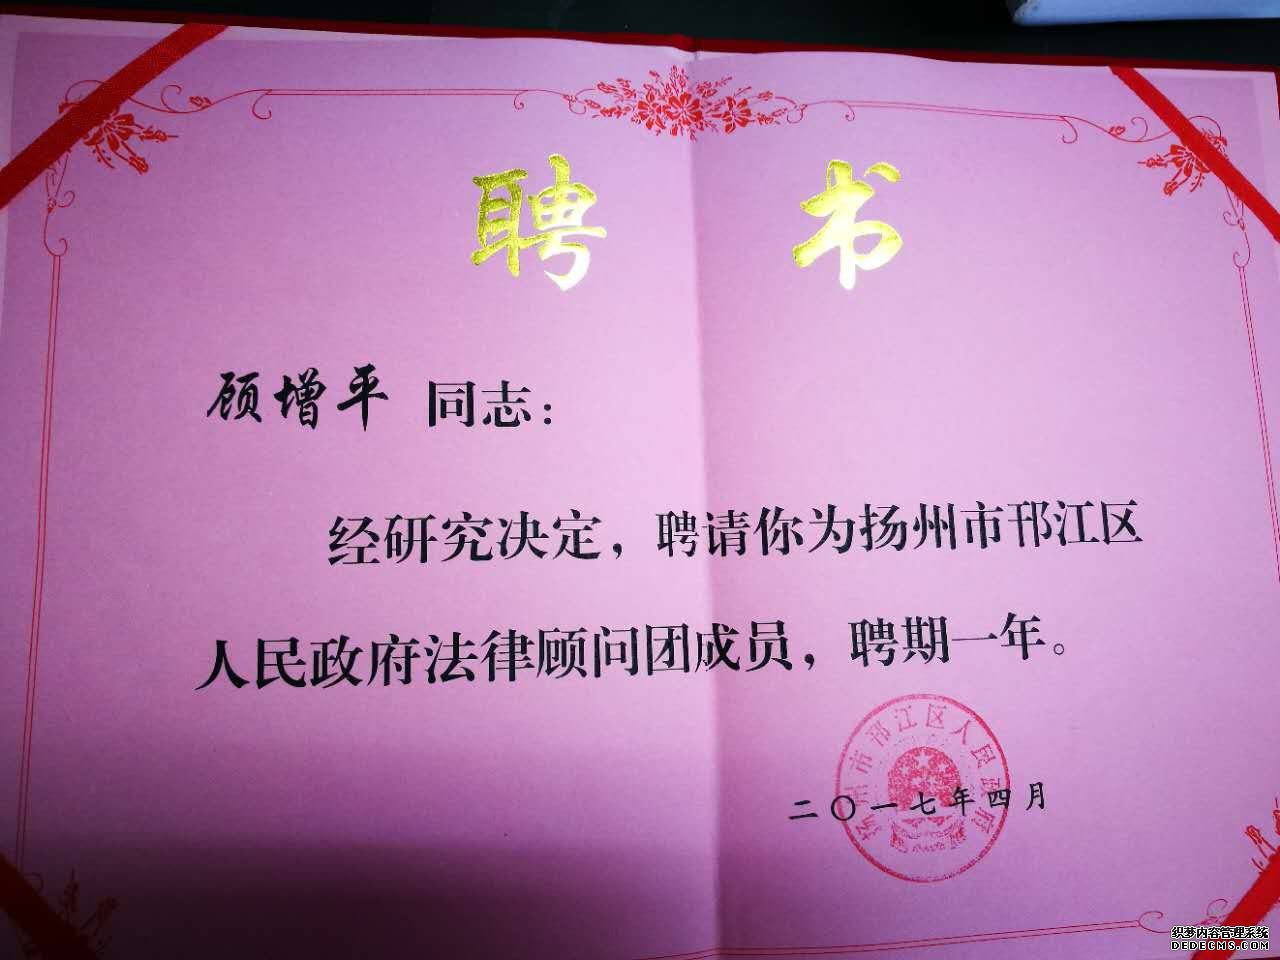 聘书
顾增平 同志：
经研究决定，聘请你为扬州市邗江区
人民政府法律顾问团成员，聘期一年。
扬州市邗江区人民政府
二〇一七年四月
织梦内容管理系统
DEDECMS.COM